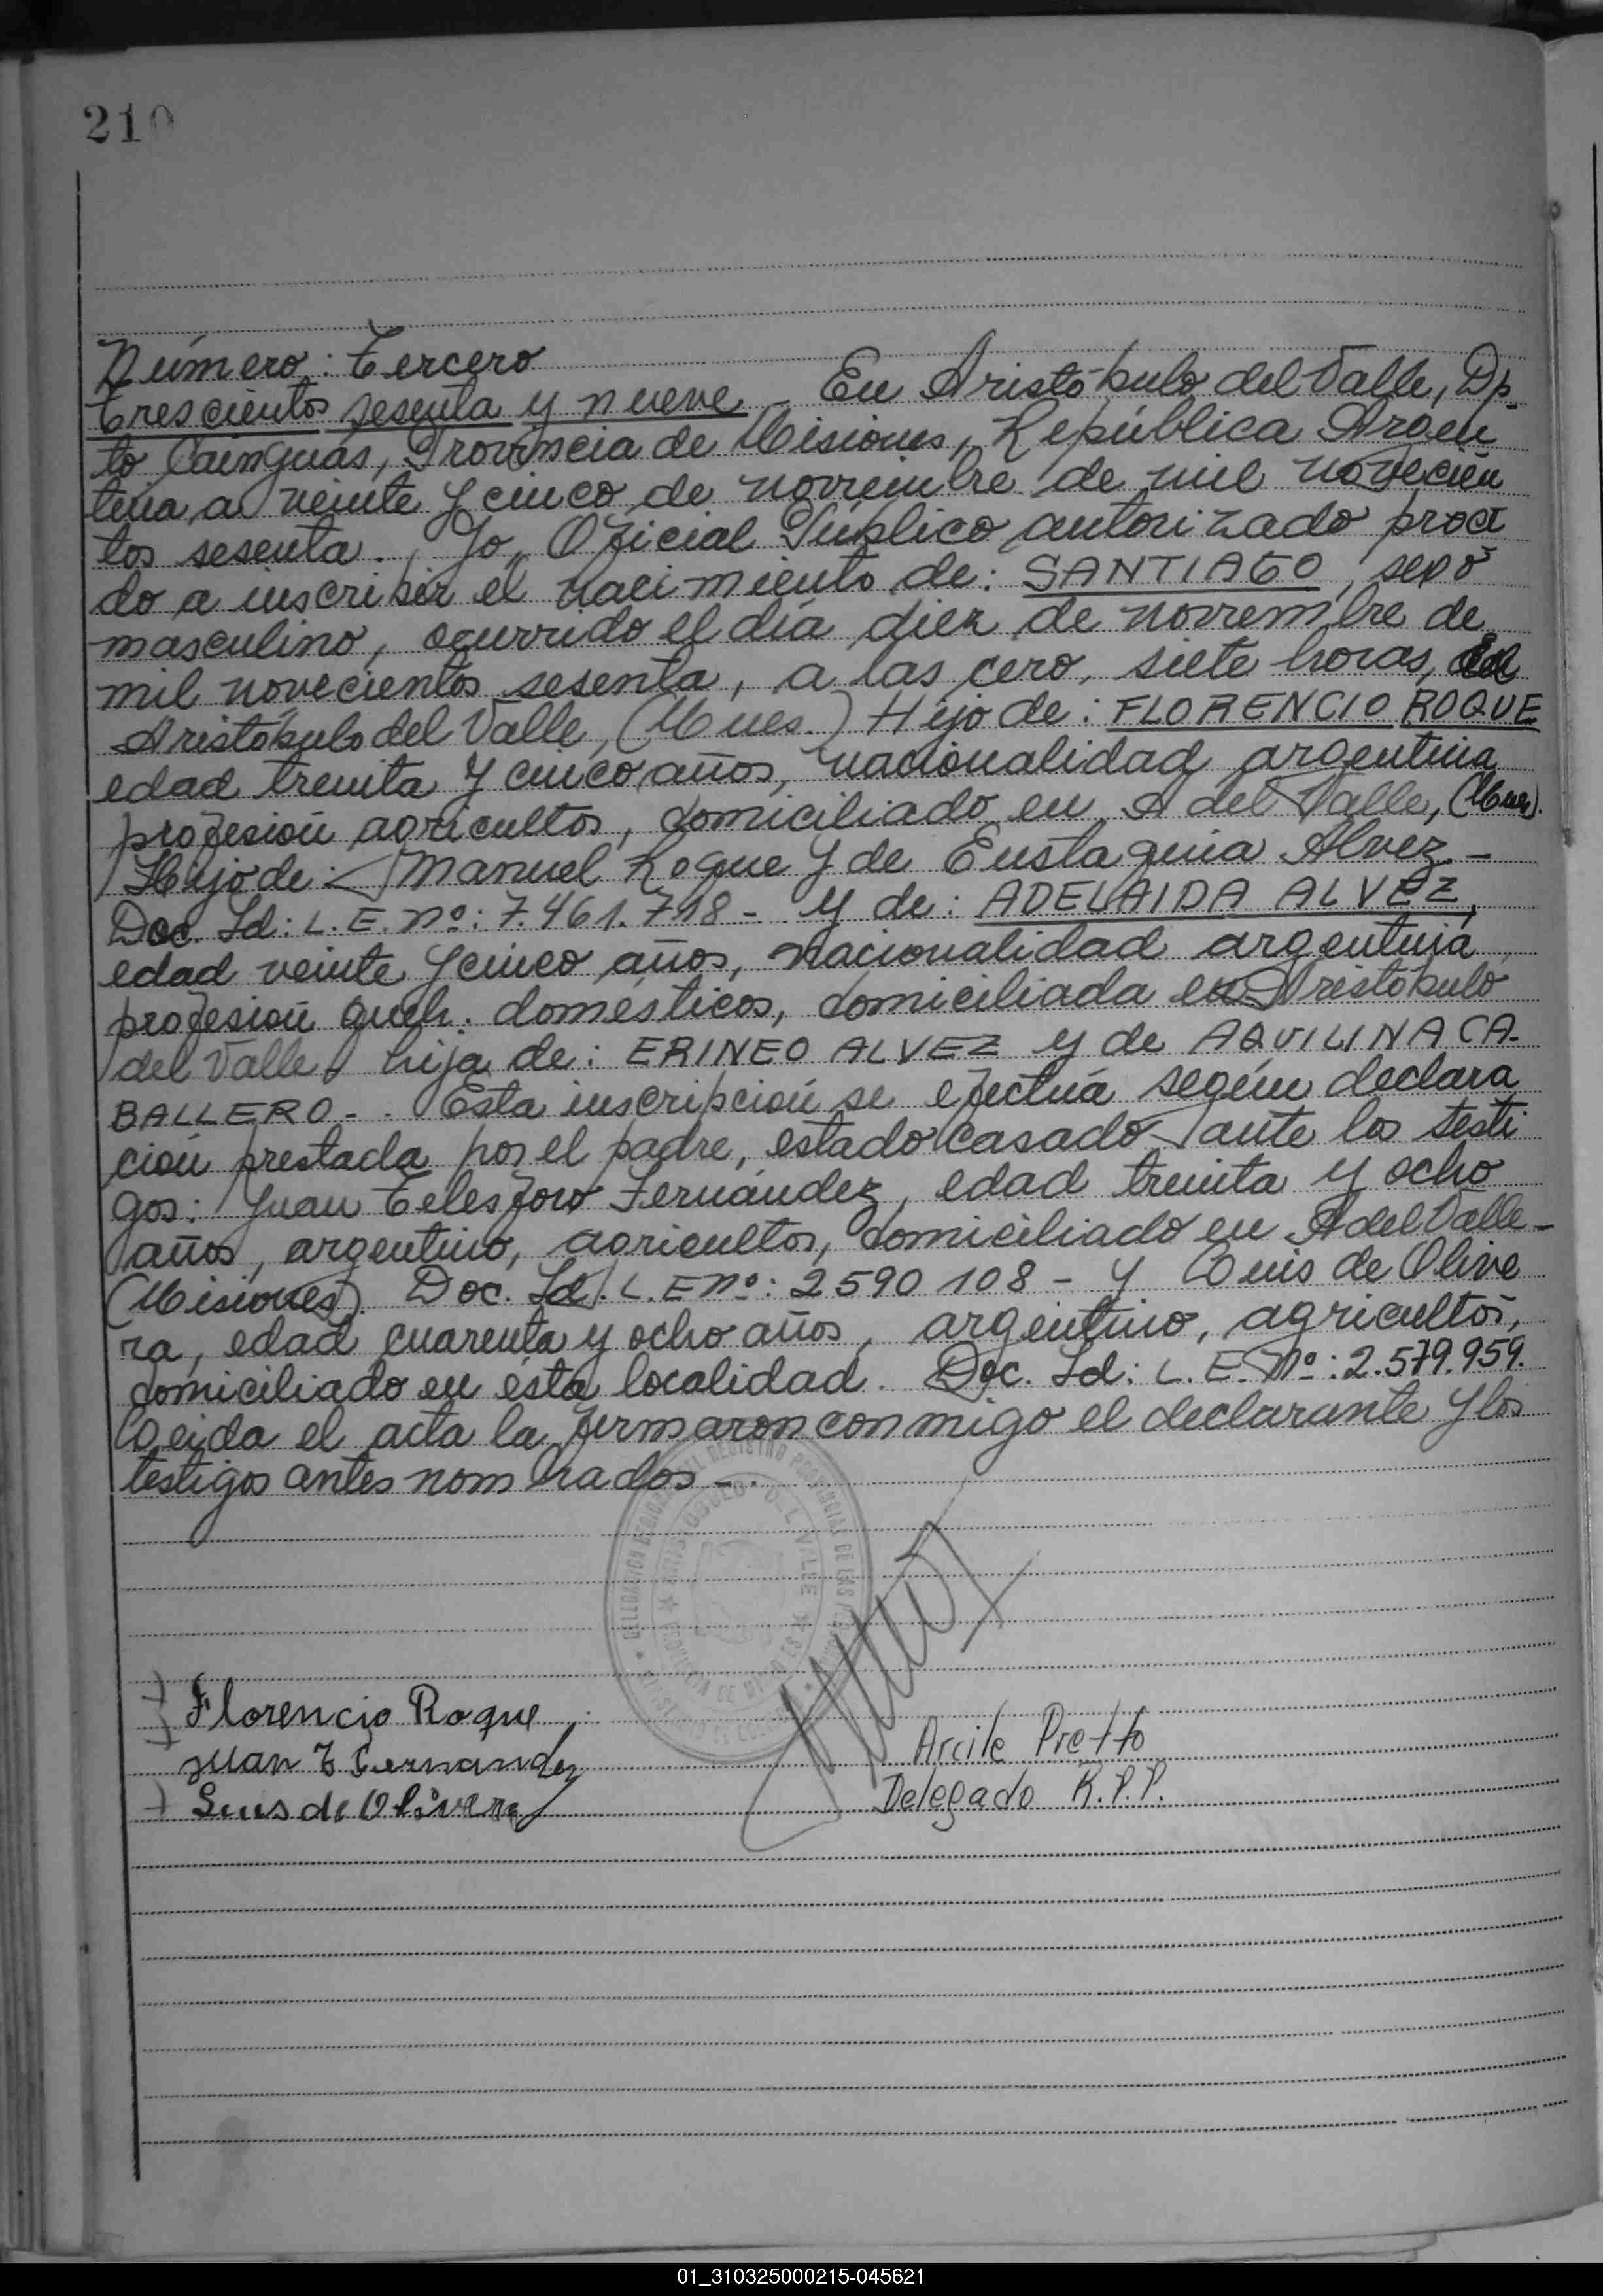 210
Número: Tercero
Trescientos sesenta y nueve - En Aristóbulo del Valle, Dp
to Cainguás, Provincia de Misiones, República Argen
tina a veinte y cinco de noviembre de mil novecien
tos sesenta. Yo, Oficial Público autorizado proce
do a inscribir el nacimiento de: SANTIAGO, sexo
masculino, ocurrido el día diez de noviembre de
mil novecientos sesenta, a las cero, siete horas, en
Aristóbulo del Valle, (Mnes.) Hijo de: FLORENCIO ROQUE
edad treinta y cinco años, nacionalidad argentina
profesión agricultor, domiciliado en A del Valle, (Mnes).
Hijo de: Manuel Roque y de Eustaquia Alvez -
Doc. Id: L. E. Nº: 7.461.718 - y de: ADELAIDA ALVEZ,
edad veinte y cinco años, nacionalidad argentina,
profesión queh. domésticos, domiciliada en Aristóbulo
del Valle hija de: ERINEO ALVEZ y de AQUILINA CA-
BALLERO - . Esta inscripción se efectúa según declara
ción prestada por el padre, estado casado ante los testi
gos: Juan Telesforo Fernández, edad treinta y ocho
años, argentino, agricultor, domiciliado en A del Valle -
(Misiones) Doc. Id. L. E Nº: 2590108 - y Luis de Olive
ra, edad cuarenta y ocho años, argentino, agricultor,
domiciliado en ésta localidad. Doc. Id: L. E. Nº: 2.579.959.
Leida el acta la firmaron conmigo el declarante y los
testigos antes nombrados - .
Florencio Roque
Juan T Fernandez
Luis de Olivera
Arcile Pretto
Delegado R.P.P.
01_310325000215-045621